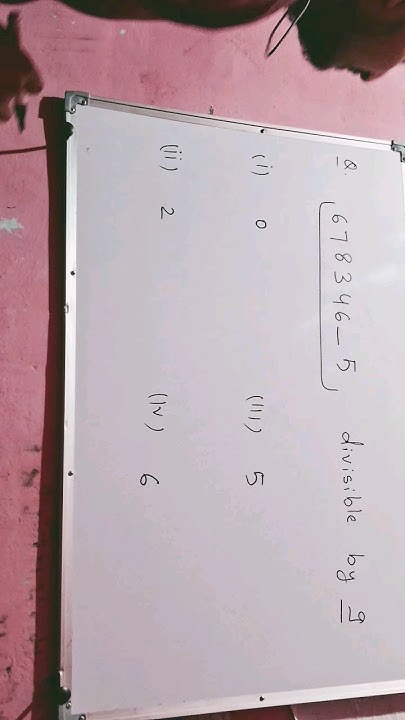 Q. 678346_5 divisible by 9
(i) 0 (iii) 5
(ii) 2 (iv) 6